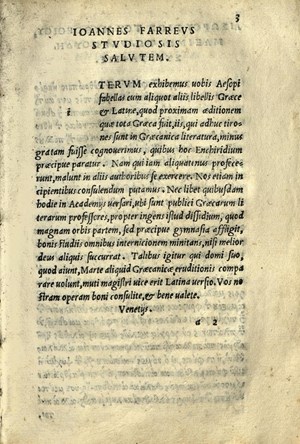 3
IOANNES FARREVS
STVDIOSIS
SALVTEM.
i TERVM exhibemus uobis Aesopi
fabellas cum aliquot aliis libellis Græce
& Latine, quod proximam æditionem
quæ tota Græca fuit, iis, qui adhuc tiro-
nes sunt in Græcanica literatura, minus
gratam fuisse cognouerimus, quibus hoc Enchiridium
præcipue paratur. Nam qui iam aliquatenus profece-
runt, malunt in aliis authoribus se exercere. Nos etiam in
cipientibus consulendum putamus. Nec liber quibusdam
hodie in Academys uersari, ubi sunt publici Græcarum li
terarum professores, propter ingens istud dissidium, quod
magnam orbis partem, sed præcipue gymnasia affligit,
bonis studiis omnibus internicionem minitans, nisi melior
deus aliquis succurrat. Talibus igitur qui domi suo,
quod aiunt, Marte aliquid Græcanicæ eruditionis compa
rare uolunt, muti magistri uice erit Latina uersio. Vos no
stram operam boni consulite, & bene ualete.
Venetys.
a 2